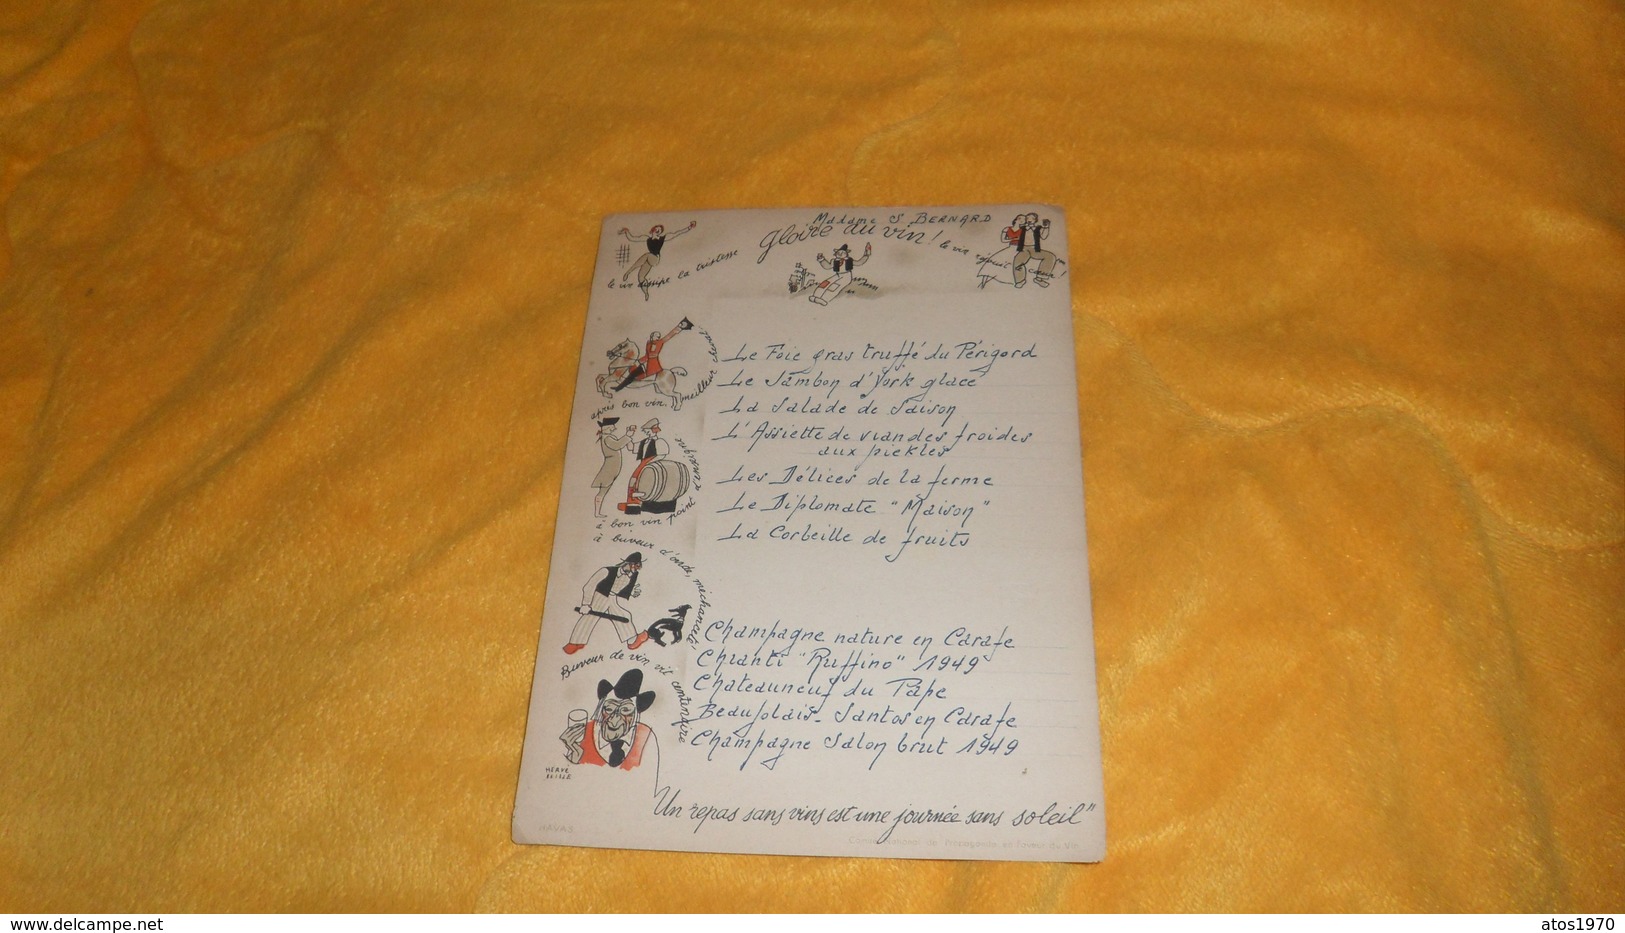 Madame S BERNARD
gloire du vin !
le vin dissipe la tristesse
le vin réjouit le cœur !
après bon vin, meilleur cheval !
à bon vin point d'enseigne
à buveur d'onde, méchanceté !
Buveur de vin vit centenaire
Le Foie gras truffé du Périgord
Le Jambon d'York glacé
La Salade de Saison
L'Assiette de viandes froides
aux pickles
Les Délices de la ferme
Le Diplomate "Maison"
La Corbeille de fruits
Champagne nature en Carafe
Chianti "Ruffino" 1949
Chateauneuf du Pape
Beaujolais - Santos en Carafe
Champagne Salon brut 1949
HERVÉ
BAILLE
"Un repas sans vins est une journée sans soleil"
HAVAS
Comité National de Propagande en faveur du Vin
http://www.delcampe.net
atos1970